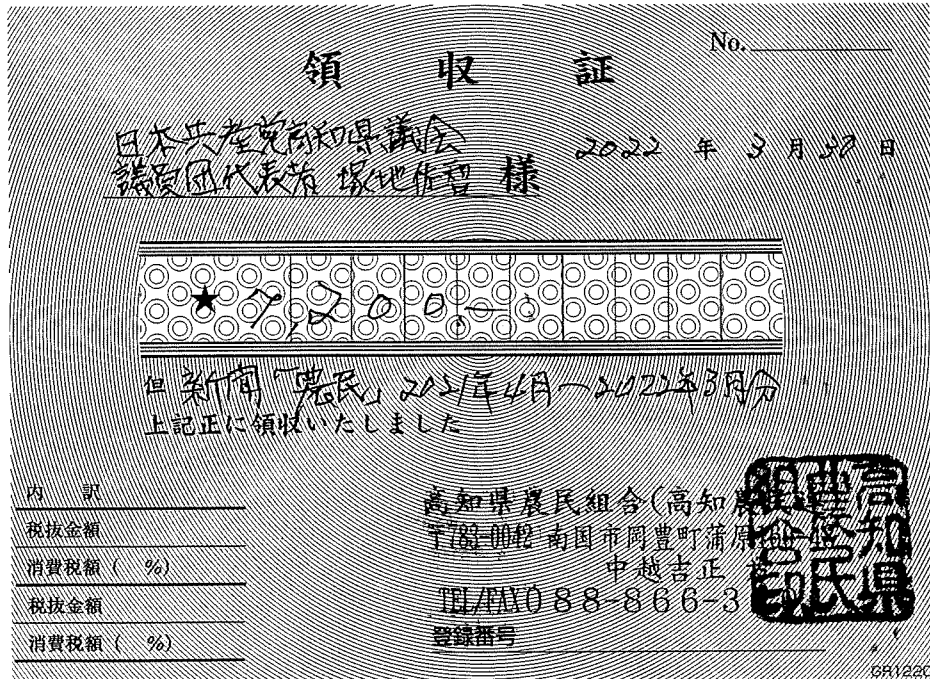 No.
領収証
日本共産党高知県議会
2022年3月30日
議員団代表者 塚地佐智 様
★ 7,200.-
但 新聞「農民」2021年4月〜2022年3月分
上記正に領収いたしました
内 訳
税抜金額
消費税額( %)
税抜金額
消費税額( %)
高知県農民組合(高知農
〒783-0042 南国市岡豊町蒲原
中越吉正
TEL/FAX 088-866-3
登録番号
高知県農民組合印
GR122C